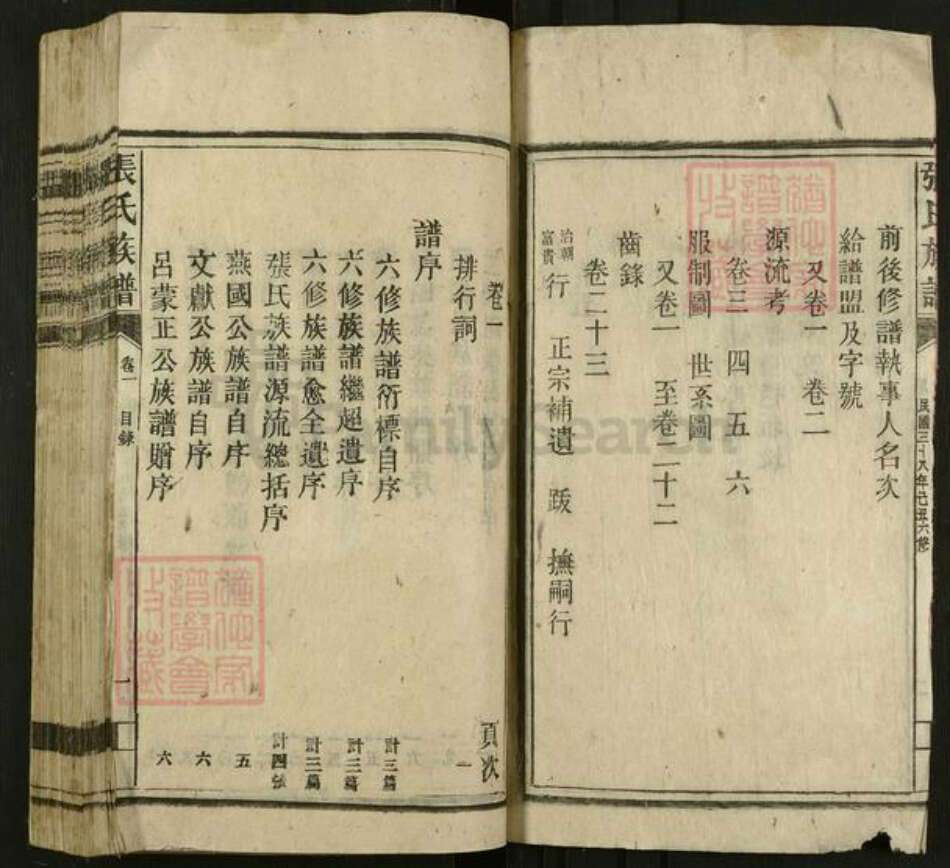 張氏族譜
民國三十八年己丑六修
前後修譜執事人名次
給譜盟及字號
又卷一 卷二
源流考
卷三 四 五 六
服制圖 世系圖
又卷一 至卷二十二
齒錄
卷二十三
治朝
富貴
行 正宗補遺 跋 撫嗣行
卷一 頁次
排行詞 一
譜序
六修族譜衍標自序 計三篇
六修族譜繼超遺序 計三篇
六修族譜愈全遺序 計三篇
張氏族譜源流總括序 計四張
燕國公族譜自序 五
文獻公族譜自序 六
呂蒙正公族譜贈序 六
張氏族譜
卷一
目錄
一
FamilySearch